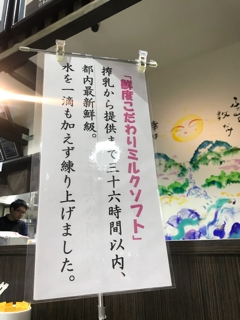 「鮮度こだわりミルクソフト」
搾乳から提供まで三十六時間以内、
都内最新鮮級。
水を一滴も加えず練り上げました。